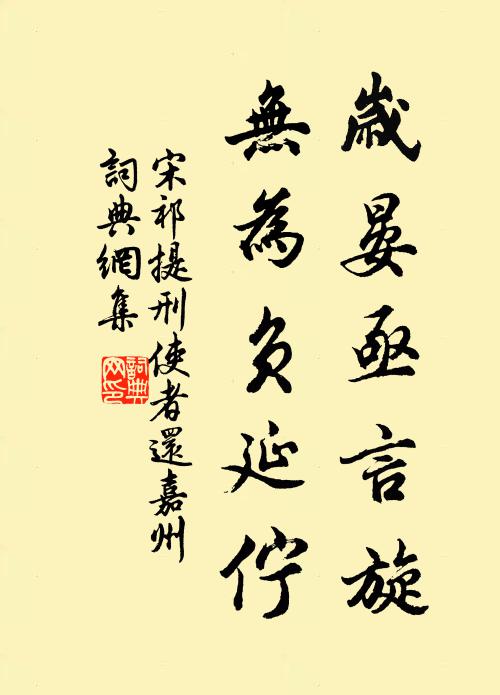 歲晏亟言旋
無為負延佇
宋祁提刑使者還嘉州
詞典網集
詞典
网印